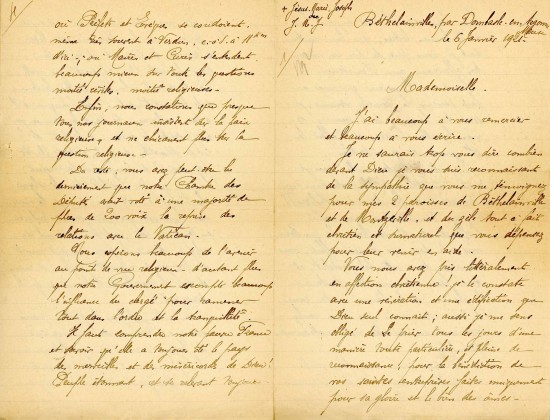 + Jésus, Marie, Joseph
J. M. J.
Béthelainville, par Dombasle-en-Argonne
Meuse
le 6 Janvier 1921.
1/
Mademoiselle.
J'ai beaucoup à vous remercier
et beaucoup à vous écrire.
Je ne saurais trop vous dire combien
devant Dieu je vous suis reconnaissant
de la sympathie que vous me témoignez
pour mes 2 paroisses de Béthelainville
et de Montzéville, et du zèle tout à fait
chrétien et surnaturel que vous dépensez
pour leur venir en aide.
Vous nous avez pris littéralement
en affection chrétienne! je le constate
avec une vénération et une édification que
Dieu seul connaît; aussi je me sens
obligé de le prier tous les jours d'une
manière toute particulière, et pleine de
reconnaissance, pour la bénédiction de
vos saintes entreprises faites uniquement
pour sa gloire et le bien des âmes.
où Préfets et Evêques se coudoient,
même très souvent à Verdun, c.à.d. à 11 km
d'ici; où Maires et Curés s'entendent
beaucoup mieux sur toutes les questions
moitié civiles, moitié religieuses.
Enfin, nous constatons que presque
tous nos journaux insistent sur la paix
religieuse, et ne chicanent plus sur la
question religieuse.
Du reste, vous avez peut-être lu
dernièrement que notre Chambre des
Députés avait voté à une majorité de
plus de 200 voix la reprise des
relations avec le Vatican.
Nous espérons beaucoup de l'avenir
au point de vue religieux, d'autant plus
que notre Gouvernement escompte beaucoup
l'influence du clergé pour ramener
tout dans l'ordre et la tranquillité.
Il faut comprendre notre pauvre France
et savoir qu'elle a toujours été le pays
de merveilles et de miséricorde de Dieu!
Peuple étonnant, et se relevant toujours